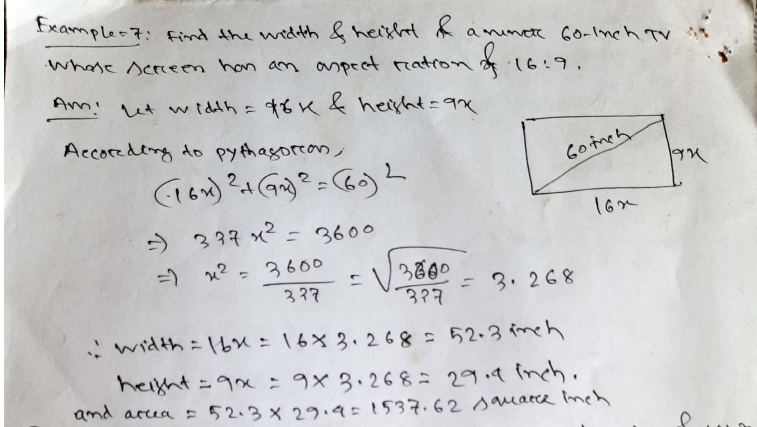 Example=7: Find the width & height of a 60-inch TV
whose screen has an aspect ration of 16:9.
Ans: Let width = 16x & height = 9x
According to pythagorean,
(16x)² + (9x)² = (60)²
60 inch
9x
16x
⇒ 337 x² = 3600
⇒ x² = 3600/337 = √3600/337 = 3.268
∴ width = 16x = 16 × 3.268 = 52.3 inch
height = 9x = 9 × 3.268 = 29.4 inch.
and area = 52.3 × 29.4 = 1537.62 square inch